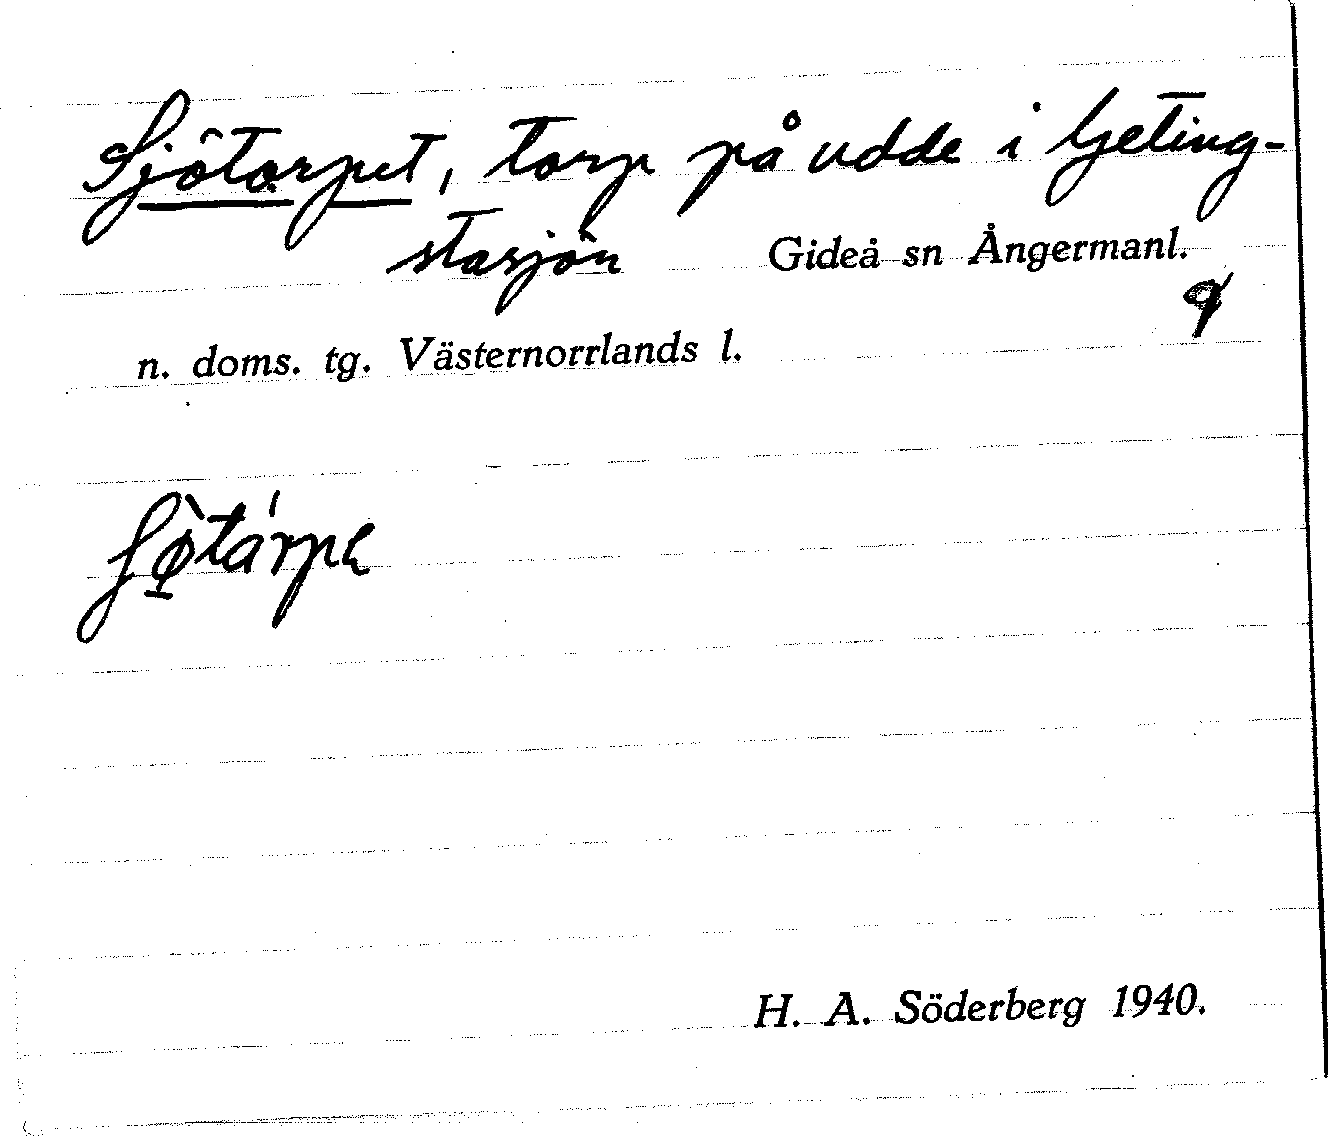 Sjötorpet, torp på udde i Geting-
stasjön Gideå sn Ångermanl.
n. doms. tg. Västernorrlands l.
H. A. Söderberg 1940.